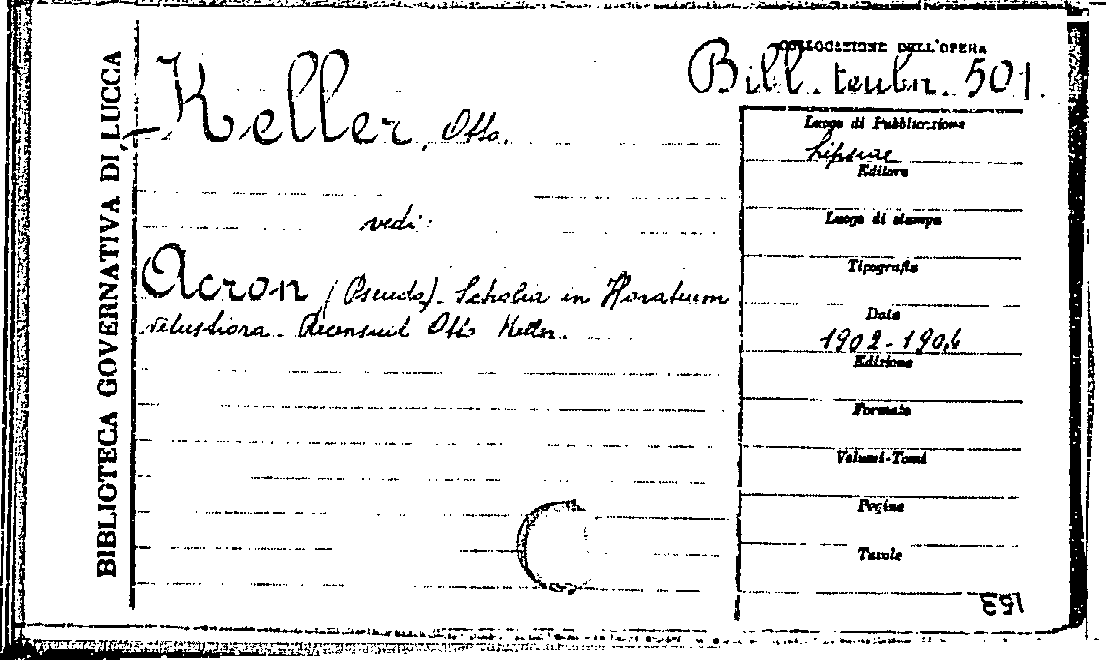 BIBLIOTECA GOVERNATIVA DI LUCCA
COLLOCAZIONE DELL'OPERA
Bill. teubn. 501.
Keller, Otto.
vedi:
Acron (Pseudo). Scholia in Horatium
vetustiora. Recensuit Otto Keller.
Luogo di Pubblicazione
Lipsiae
Editore
Luogo di stampa
Tipografia
Data
1902-1904
Edizione
Formato
Volumi-Tomi
Pagine
Tavole
153